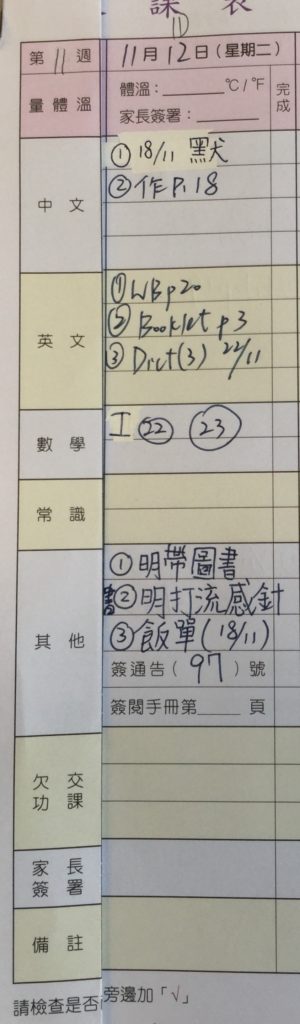 課表
第11週 11月12日(星期二)
量體溫 體溫:______°C/°F 完成
家長簽署:______
中文
① 18/11 默犬
② 作P.18
英文
① WB p20
② Booklet p3
③ Dict(3) 22/11
數學 I ㉒ ㉓
常識
其他
① 明帶圖書
② 明打流感針
③ 飯單(18/11)
簽通告(97)號
簽閱手冊第____頁
欠交功課
家長簽署
備註
請檢查是否 旁邊加「√」